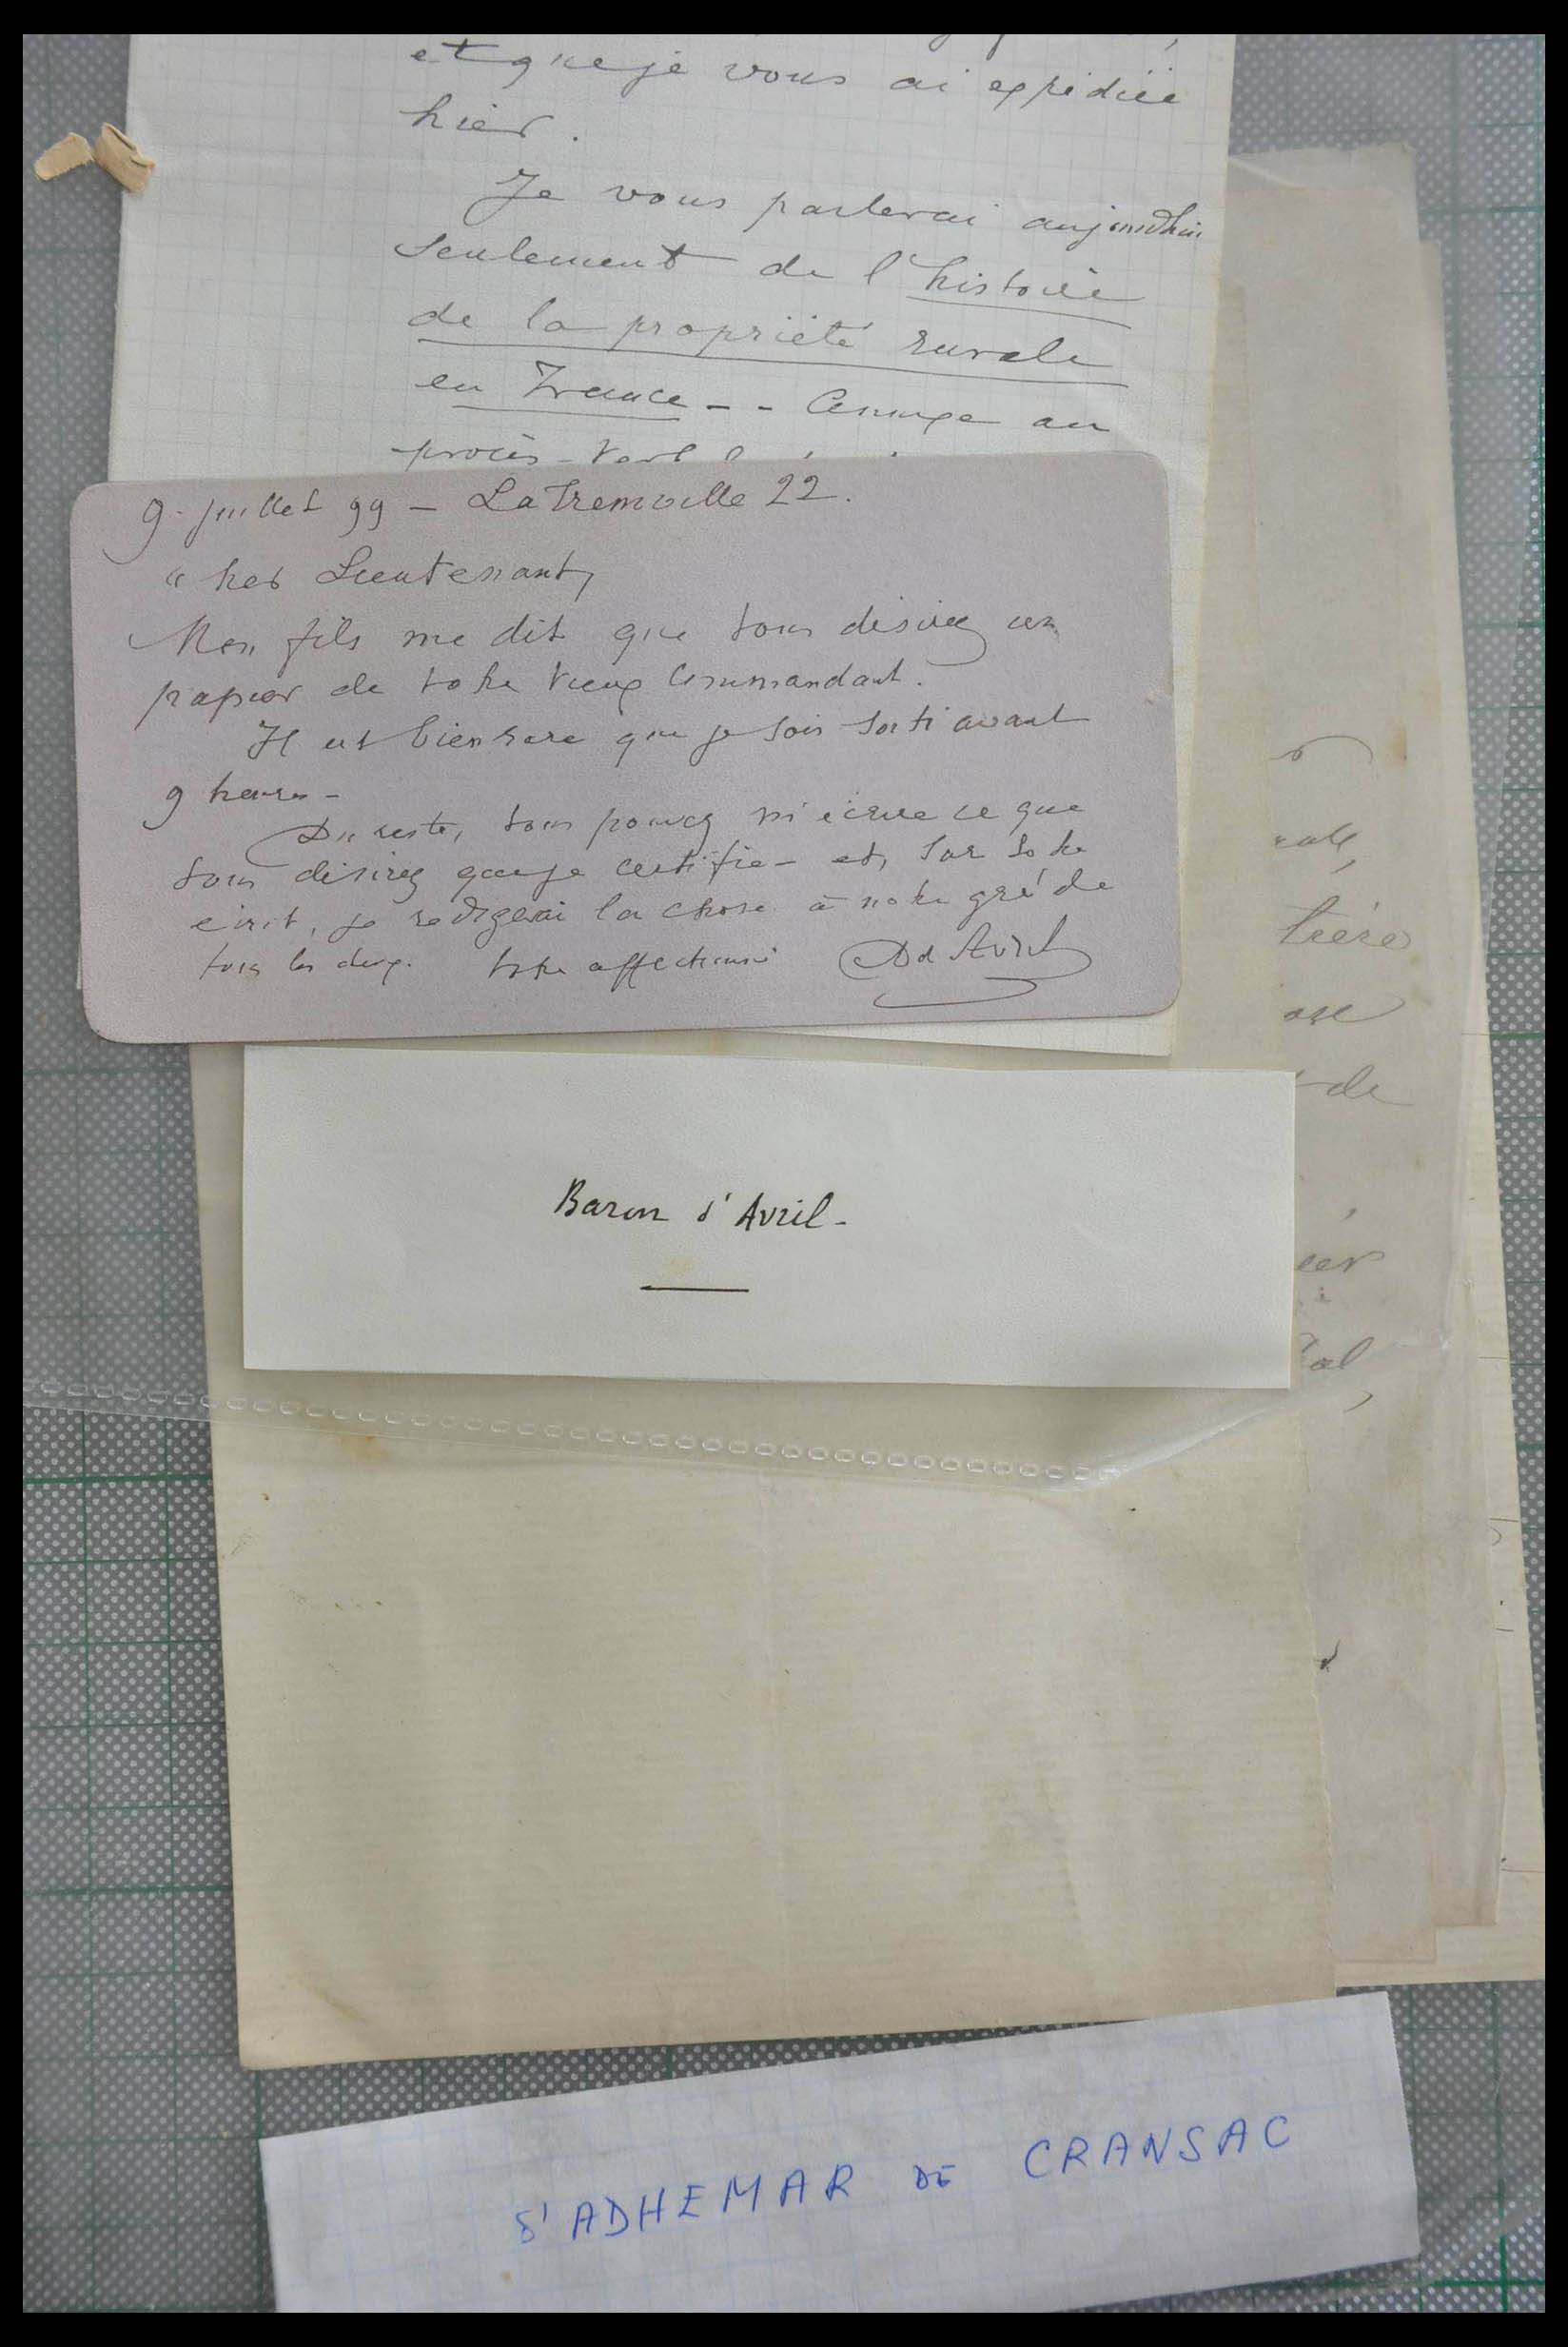 et que je vous ai expédiée
hier.
Je vous parlerai aujourd'hui
seulement de l'histoire
de la propriété rurale
en France -- Annexe au
procès-verbal
9 juillet 99 - La Tremoille 22.
Cher Lieutenant,
Mon fils me dit que vous désirez un
papier de votre vieux Commandant.
Il est bien rare que je sois sorti avant
9 heures -
Du reste, vous pouvez m'écrire ce que
vous désirez que je certifie - et, sur votre
écrit, je redigerai la chose à notre gré de
tous les deux. Votre affectionné Ad d'Avril
Baron d'Avril -
rale,
ose
de
al,
d'ADHEMAR DE CRANSAC